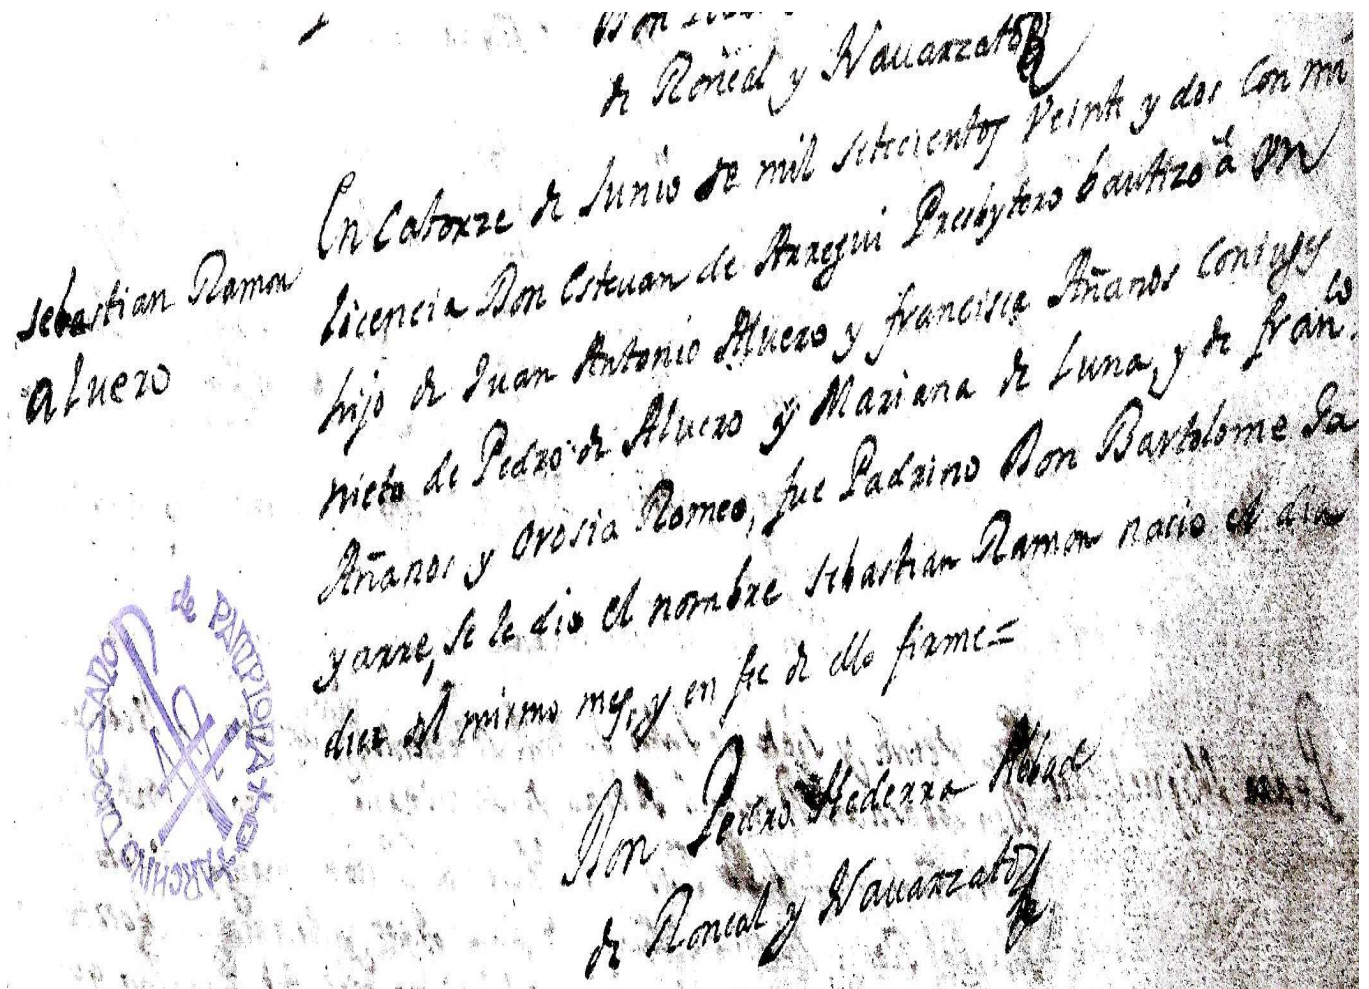 de Roncal y Nauarzato
En Catorze de Junio de mil setecientos Veinte y dos Con mi
licencia Don Esteuan de Arregui Presbytero bautizo á Vn
hijo de Juan Antonio Aluero y francisca Añanos Coniuges
nieto de Pedro de Aluero y Mariana de Luna, y de franco.
Añanos y Orosia Romeo, fue Padrino Don Bartolome Ga
yarre, se le dio el nombre Sebastian Ramon nacio el dia
diez del mismo mes, y en fee de ello firme=
Sebastian Ramon
Aluero
Don Pedro Hederra Abbad
de Roncal y Nauarzato
ARCHIVO DIOCESANO de PAMPLONA